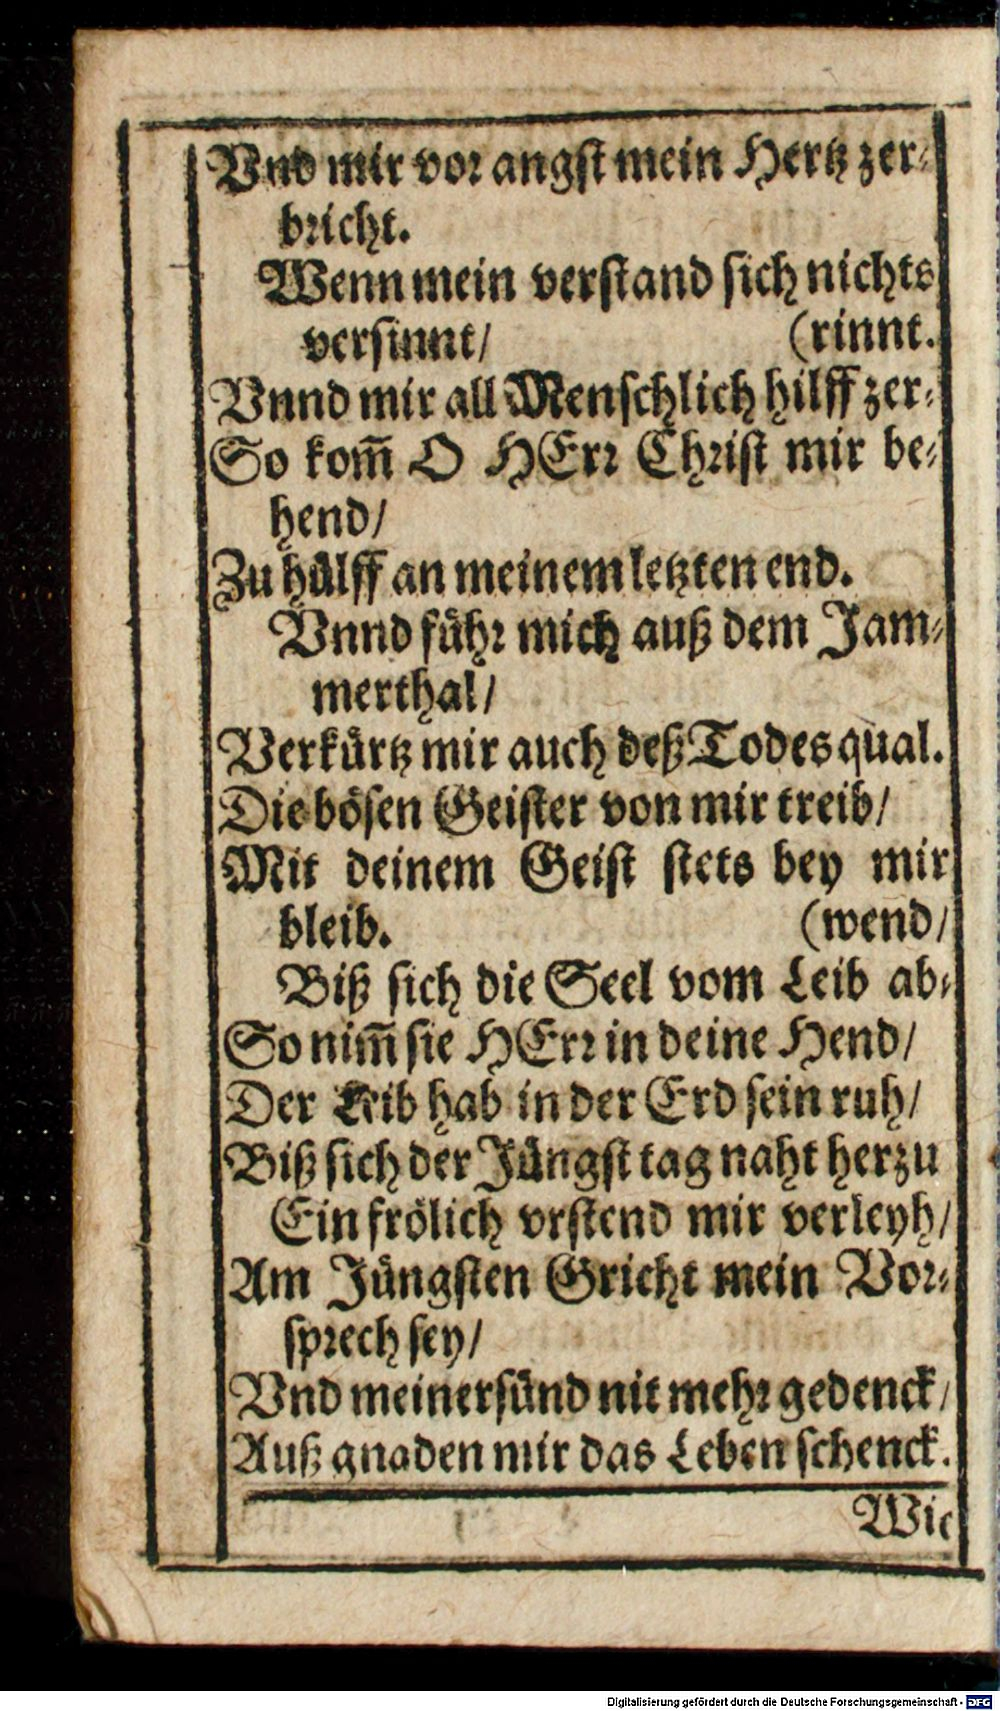 Vnd mir vor angst mein Hertz zer-
bricht.
Wenn mein verstand sich nichts
versinnt/ (rinnt.
Vnnd mir all Menschlich hilff zer-
So kom̃ O HErr Christ mir be-
hend/
Zu hülff an meinem letzten end.
Vnnd führ mich auß dem Jam-
merthal/
Verkürtz mir auch deß Todes qual.
Die bösen Geister von mir treib/
Mit deinem Geist stets bey mir
bleib. (wend/
Biß sich die Seel vom Leib ab-
So nim̃ sie HErr in deine Hend/
Der Leib hab in der Erd sein ruh/
Biß sich der Jüngst tag naht herzu
Ein frölich vrstend mir verleyh/
Am Jüngsten Gricht mein Vor-
sprech sey/
Vnd meiner sünd nit mehr gedenck/
Auß gnaden mir das Leben schenck.
Wie
Digitalisierung gefördert durch die Deutsche Forschungsgemeinschaft - DFG